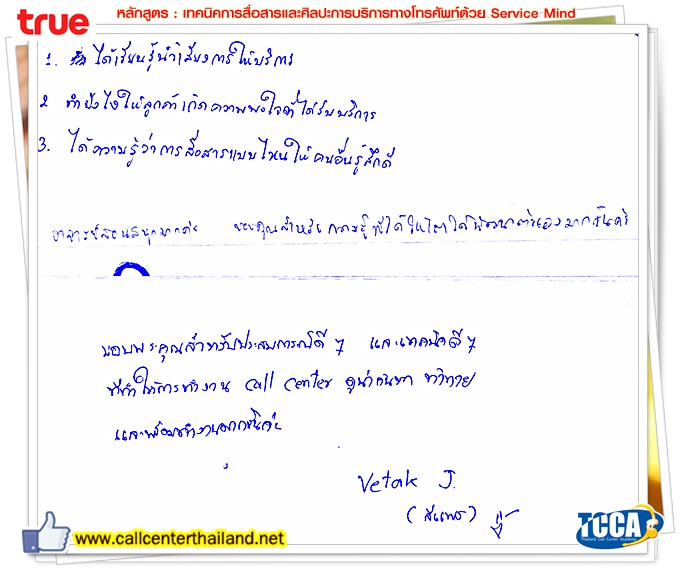 true
หลักสูตร : เทคนิคการสื่อสารและศิลปะการบริการทางโทรศัพท์ด้วย Service Mind
1. ได้เรียนรู้น้ำเสียงการให้บริการ
2 ทำยังไงให้ลูกค้าเกิดความพอใจที่ได้รับบริการ
3. ได้ความรู้ว่าการสื่อสารแบบไหนให้คนอื่นรู้สึกดี
อาจารย์สอนสนุกมากค่ะ ขอบคุณสำหรับความรู้ที่ได้ ได้พัฒนาตัวเองมาก
ขอบพระคุณสำหรับประสบการณ์ดี ๆ และเทคนิคดี ๆ
ที่ทำให้การทำงาน Call Center ดูน่าค้นหา ท้าทาย
และพร้อมทำงานมากขึ้นค่ะ
Vetak J.
www.callcenterthailand.net
TCCA
Thailand Call Center Academy